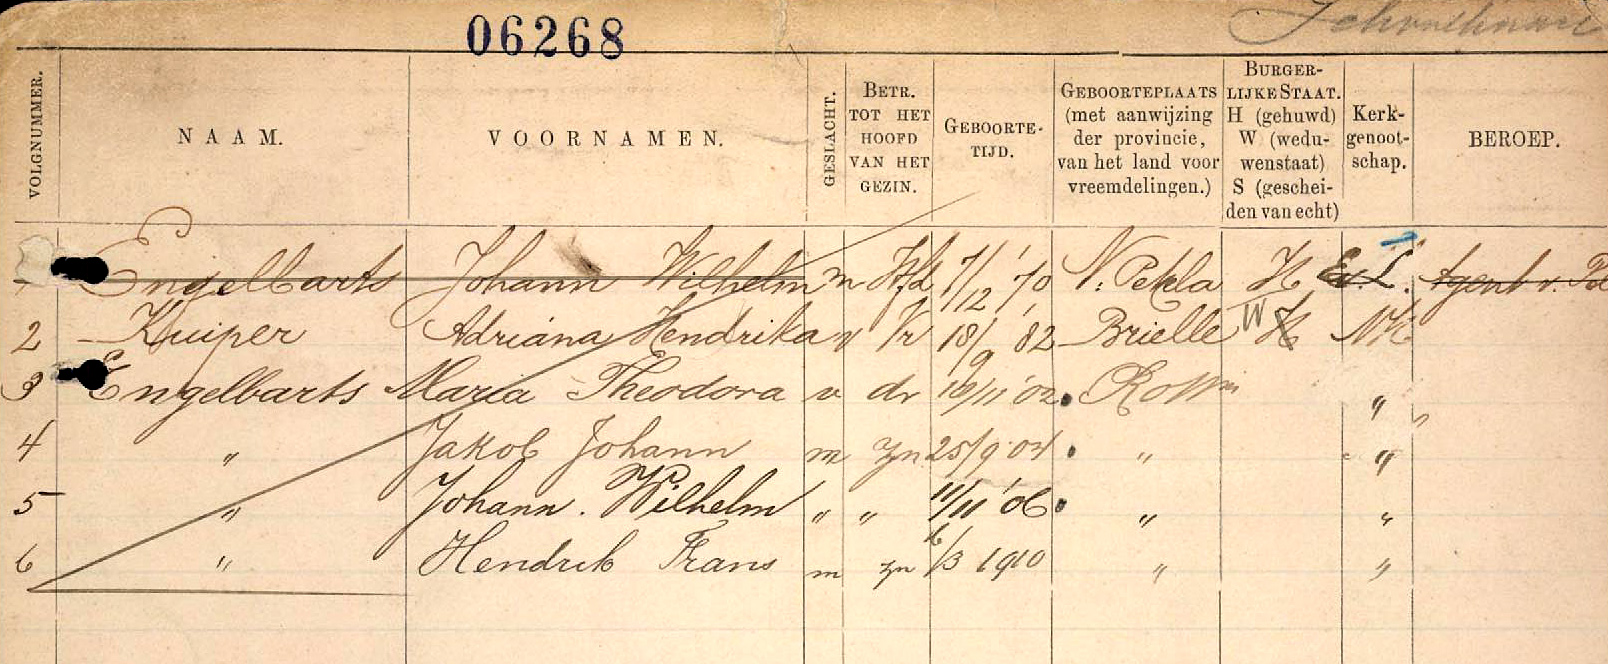 06268
VOLGNUMMER.
NAAM.
VOORNAMEN.
GESLACHT.
BETR. TOT HET HOOFD VAN HET GEZIN.
GEBOORTE-TIJD.
GEBOORTEPLAATS (met aanwijzing der provincie, van het land voor vreemdelingen.)
BURGER-LIJKE STAAT. H (gehuwd) W (wedu-wenstaat) S (geschei-den van echt)
Kerk-genoot-schap.
BEROEP.
Engelbarts Johann Wilhelm m Hfd 7/12 '70 N. Pekla H Ev. L. Agent v. Pol
2 Kuiper Adriana Hendrika v Vr 18/9 82 Brielle W H NH
3 Engelbarts Maria Theodora v dr 10/11 '02 Rottm "
4 " Jakob Johann m zn 25/9 04 " "
5 " Johann Wilhelm " " 11/11 '06 " "
6 " Hendrik Frans m zn 16/3 1910 " "